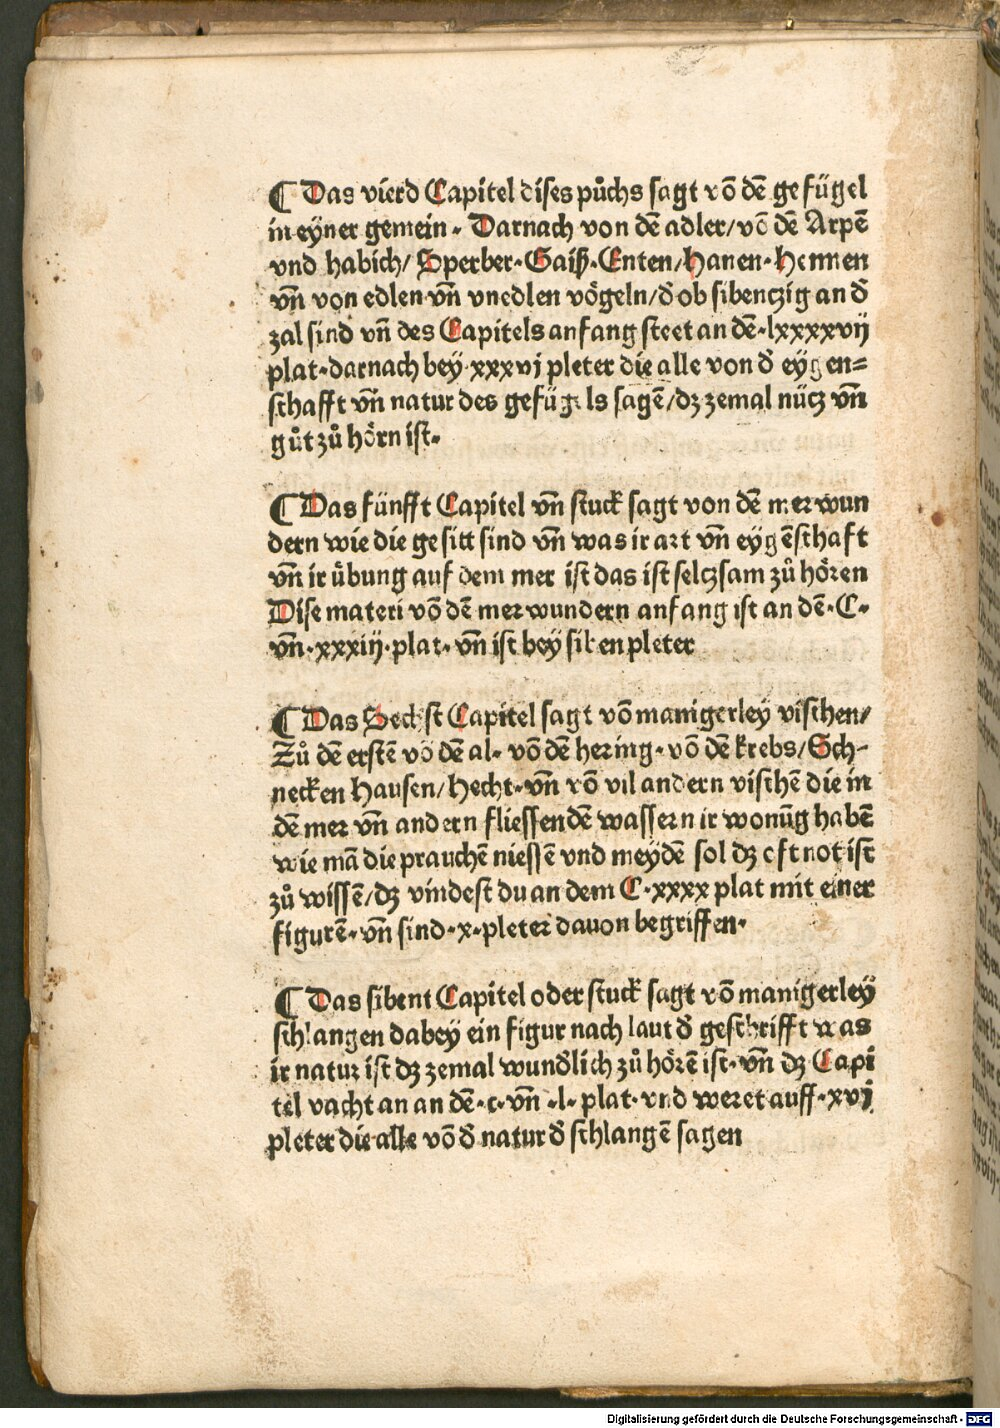 ¶ Das vierd Capitel dises půchs sagt võ dē gefügel
in eyner gemein · Darnach von dē adler/ võ dē Arpē
vnd habich/ Sperber · Gaiß · Enten/ Hanen · Hennen
vñ von edlen vñ vnedlen vögeln/ đ ob sibenczig an đ
zal sind vñ des Capitels anfang steet an dē · lxxxxvij
plat · darnach bey · xxxvj pleter die alle von đ eygen=
schafft vñ natur des gefügels sagē/ dz zemal nücz vñ
gůt zů hörn ist ·
¶ Das fünfft Capitel vñ stuck sagt von dē merwun
dern wie die gesitt sind vñ was ir art vñ eygēschaft
vñ ir übung auf dem mer ist das ist selczsam zů hören
Dise materi võ dē merwundern anfang ist an dē · C ·
vñ · xxxiij · plat · vñ ist bey siben pleter
¶ Das Sechst Capitel sagt võ manigerley vischen/
Zů dē erstē võ dē al · võ dē hering · võ dē krebs/ Sch-
necken Hausen/ Hecht · vñ võ vil andern vischē die in
dē mer vñ andern fliessendē wassern ir wonūg habē
wie mā die prauchē niessē vnd meydē sol dz oft not ist
zů wissē/ dz vindest du an dem C · xxxx plat mit einer
figurē · vñ sind · x · pleter dauon begriffen ·
¶ Das sibent Capitel oder stuck sagt võ manigerley
schlangen dabey ein figur nach laut đ geschrifft was
ir natur ist dz zemal wunđlich zů hörē ist · vñ dz Capi
tel vacht an an dē · c · vñ · l · plat · vnd weret auff · xvj
pleter die alle võ đ natur đ schlangē sagen
Digitalisierung gefördert durch die Deutsche Forschungsgemeinschaft - DFG